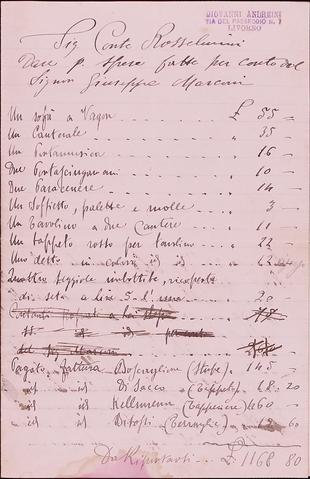 GIOVANNI ANDREINI
VIA DEL PASSEGGIO N. 7
LIVORNO
Sig Conte Rosselmini
Dare p. spese fatte per conto del
Signor Giuseppe Marconi
Un soffà a Vagon £ 55 —
Un Canterale 35 —
Un Portamusica 16 —
Due Portasciugamani 10 —
Due Paracenere 14 —
Un Soffietto, palette e molle 3 —
Un Tavolino a due Cantere 11 —
Un tappeto rosso per tavolino 22 —
Uno detto in colori id id
Quattro seggiole imbottite, ricoperte
di seta a lire 5 l'una 20 —
Pagato fattura (Stoffe) 145 —
id id Di Sacco 68 20
id id 460 —
id id 60
Da Riportarsi £ 1168 80